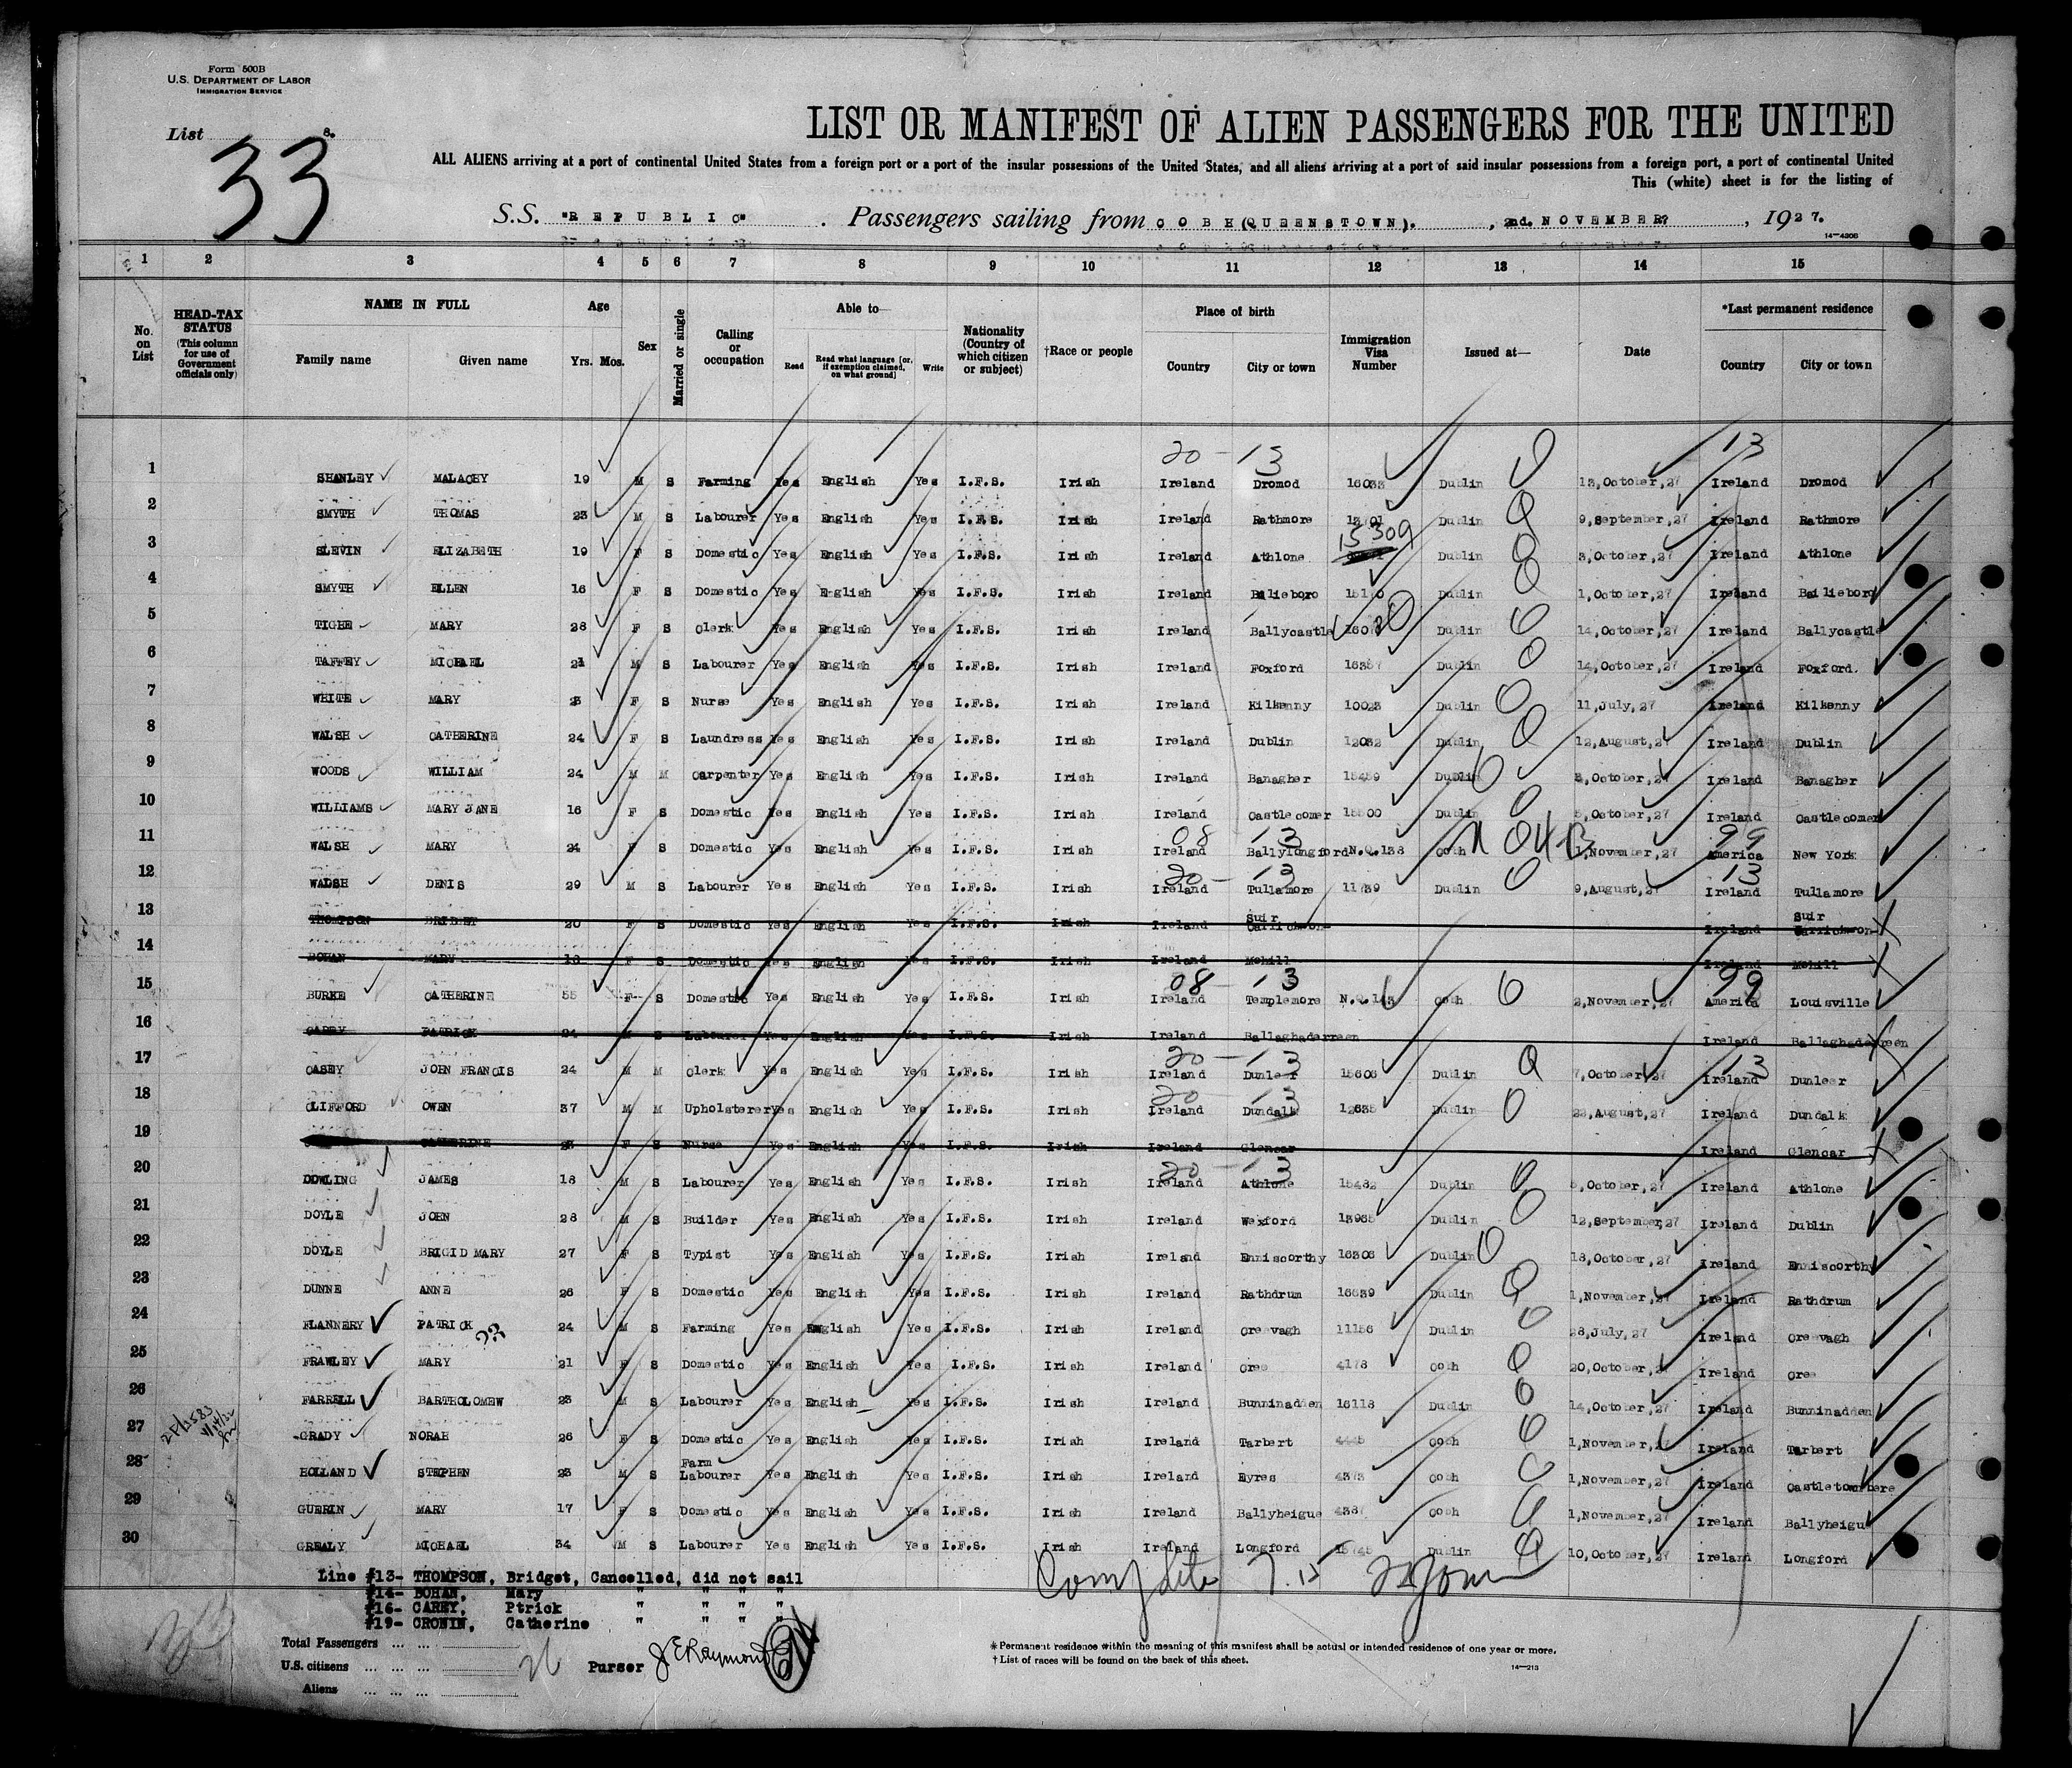 Form 500B
U.S. DEPARTMENT OF LABOR
IMMIGRATION SERVICE
List 33
LIST OR MANIFEST OF ALIEN PASSENGERS FOR THE UNITED
ALL ALIENS arriving at a port of continental United States from a foreign port or a port of the insular possessions of the United States, and all aliens arriving at a port of said insular possessions from a foreign port, a port of continental United
This (white) sheet is for the listing of
S.S. "REPUBLIC". Passengers sailing from COBH(QUEENSTOWN)., 2nd. NOVEMBER, 1927.
14—4306
1 2 3 4 5 6 7 8 9 10 11 12 13 14 15
No. on List HEAD-TAX STATUS (This column for use of Government officials only) NAME IN FULL Family name Given name Age Yrs. Mos. Sex Married or single Calling or occupation Able to— Read Read what language [or, if exemption claimed, on what ground] Write Nationality (Country of which citizen or subject) †Race or people Place of birth Country City or town Immigration Visa Number Issued at— Date *Last permanent residence Country City or town
20 - 13 13
1 SHANLEY MALACHY 19 M S Farming Yes English Yes I.F.S. Irish Ireland Dromod 16033 Dublin 13,October,27 Ireland Dromod
2 SMYTH THOMAS 23 M S Labourer Yes English Yes I.F.S. Irish Ireland Rathmore 13701 Dublin 9,September,27 Ireland Rathmore
3 SLEVIN ELIZABETH 19 F S Domestic Yes English Yes I.F.S. Irish Ireland Athlone 15309 Dublin 3,October,27 Ireland Athlone
4 SMYTH ELLEN 16 F S Domestic Yes English Yes I.F.S. Irish Ireland Balieboro Dublin 1,October,27 Ireland Bailieboro
5 TIGHE MARY 28 F S Clerk Yes English Yes I.F.S. Irish Ireland Ballycastle Dublin 14,October,27 Ireland Ballycastle
6 TAFFEY MICHAEL 21 M S Labourer Yes English Yes I.F.S. Irish Ireland Foxford 16357 Dublin 14,October,27 Ireland Foxford.
7 WHITE MARY F S Nurse Yes English Yes I.F.S. Irish Ireland Kilkenny 10023 Dublin 11,July,27 Ireland Kilkenny
8 WALSH CATHERINE 24 F S Laundress Yes English Yes I.F.S. Irish Ireland Dublin 12032 Dublin 12,August,27 Ireland Dublin
9 WOODS WILLIAM 24 M M Carpenter Yes English Yes I.F.S. Irish Ireland Banagher 15459 Dublin October,27 Ireland Banagher
10 WILLIAMS MARY JANE 16 F S Domestic Yes English Yes I.F.S. Irish Ireland Castlecomer 15500 Dublin 5,October,27 Ireland Castlecomer
08 13 99
11 WALSH MARY 24 F S Domestic Yes English Yes I.F.S. Irish Ireland Ballylongford N.Q.138 Cobh 1,November,27 America New York
20 - 13 13
12 WALSH DENIS 29 M S Labourer Yes English Yes I.F.S. Irish Ireland Tullamore 11739 Dublin 9,August,27 Ireland Tullamore
13 THOMPSON BRIDGET 20 F S Domestic Yes English Yes I.F.S. Irish Ireland Carrick-on-Suir Ireland Carrick-on-Suir
14 BOHAN MARY 18 F S Domestic Yes English Yes I.F.S. Irish Ireland Mohill Ireland Mohill
08 - 13 99
15 BURKE CATHERINE 55 F S Domestic Yes English Yes I.F.S. Irish Ireland Templemore Cobh 2,November,27 America Louisville
16 CAREY PATRICK 24 M S Labourer Yes English Yes I.F.S. Irish Ireland Ballaghaderreen Ireland Ballaghaderreen
20 - 13 13
17 CASEY JOHN FRANCIS 24 M M Clerk Yes English Yes I.F.S. Irish Ireland Dunleer 15606 Dublin 7,October,27 Ireland Dunleer
20 - 13
18 CLIFFORD OWEN 37 M M Upholsterer Yes English Yes I.F.S. Irish Ireland Dundalk 12635 Dublin 22,August,27 Ireland Dundalk
19 CATHERINE 23 F S Nurse Yes English Yes I.F.S. Irish Ireland Glencar Ireland Glencar
20 - 13
20 DOWLING JAMES 18 M S Labourer Yes English Yes I.F.S. Irish Ireland Athlone 15482 Dublin 5,October,27 Ireland Athlone
21 DOYLE JOHN 28 M S Builder Yes English Yes I.F.S. Irish Ireland Wexford 13965 Dublin 12,September,27 Ireland Dublin
22 DOYLE BRIGID MARY 27 F S Typist Yes English Yes I.F.S. Irish Ireland Enniscorthy 16306 Dublin 18,October,27 Ireland Enniscorthy
23 DUNNE ANNE 26 F S Domestic Yes English Yes I.F.S. Irish Ireland Rathdrum 16639 Dublin 1,November,27 Ireland Rathdrum
24 FLANNERY PATRICK 23 24 M S Farming Yes English Yes I.F.S. Irish Ireland Creevagh 11156 Dublin 28,July,27 Ireland Creevagh
25 FRAWLEY MARY 21 F S Domestic Yes English Yes I.F.S. Irish Ireland Cree 4178 Cobh 20,October,27 Ireland Cree
26 FARRELL BARTHOLOMEW 23 M S Labourer Yes English Yes I.F.S. Irish Ireland Bunninadden 16118 Dublin 14,October,27 Ireland Bunninadden
27 GRADY NORAH 26 F S Domestic Yes English Yes I.F.S. Irish Ireland Tarbert 4445 Cobh 1,November,27 Ireland Tarbert
28 HOLLAND STEPHEN 23 M S Farm Labourer Yes English Yes I.F.S. Irish Ireland Eyres 4373 Cobh 1,November,27 Ireland Castletownbere
29 GUERIN MARY 17 F S Domestic Yes English Yes I.F.S. Irish Ireland Ballyheigue 4387 Cobh 1,November,27 Ireland Ballyheigue
30 GREALY MICHAEL 34 M S Labourer Yes English Yes I.F.S. Irish Ireland Longford 15745 Dublin 10,October,27 Ireland Longford
Line #13- THOMPSON, Bridget, Cancelled, did not sail
#14- BOHAN, Mary " " " "
#16- CAREY, Ptrick " " " "
#19- CRONIN, Catherine " " " "
Complete
Total Passengers ... ...
U.S. citizens ... ... ... 26
Aliens ... ... ...
Purser J E Raymond
* Permanent residence within the meaning of this manifest shall be actual or intended residence of one year or more.
† List of races will be found on the back of this sheet.
14—213